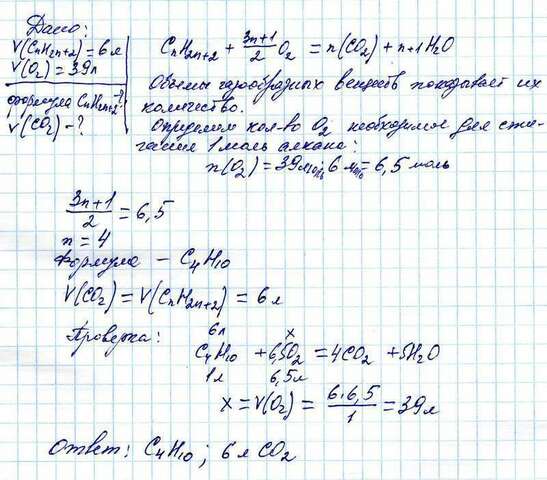 Дано:
V(CnH2n+2) = 6 л
V(O2) = 39 л
формула CnH2n+2 - ?
V(CO2) - ?
CnH2n+2 + 3n+1/2 O2 = n(CO2) + n+1 H2O
Объемы газообразных веществ показывает их
количество.
Определим кол-во O2, необходимое для сжи-
гания 1 моль алкана:
n(O2) = 39 моль : 6 моль = 6,5 моль
3n+1/2 = 6,5
n = 4
Формула - C4H10
V(CO2) = V(CnH2n+2) = 6 л
Проверка:
6л x
C4H10 + 6,5O2 = 4CO2 + 5H2O
1л 6,5л
x = V(O2) = 6·6,5/1 = 39 л
Ответ: C4H10; 6 л CO2